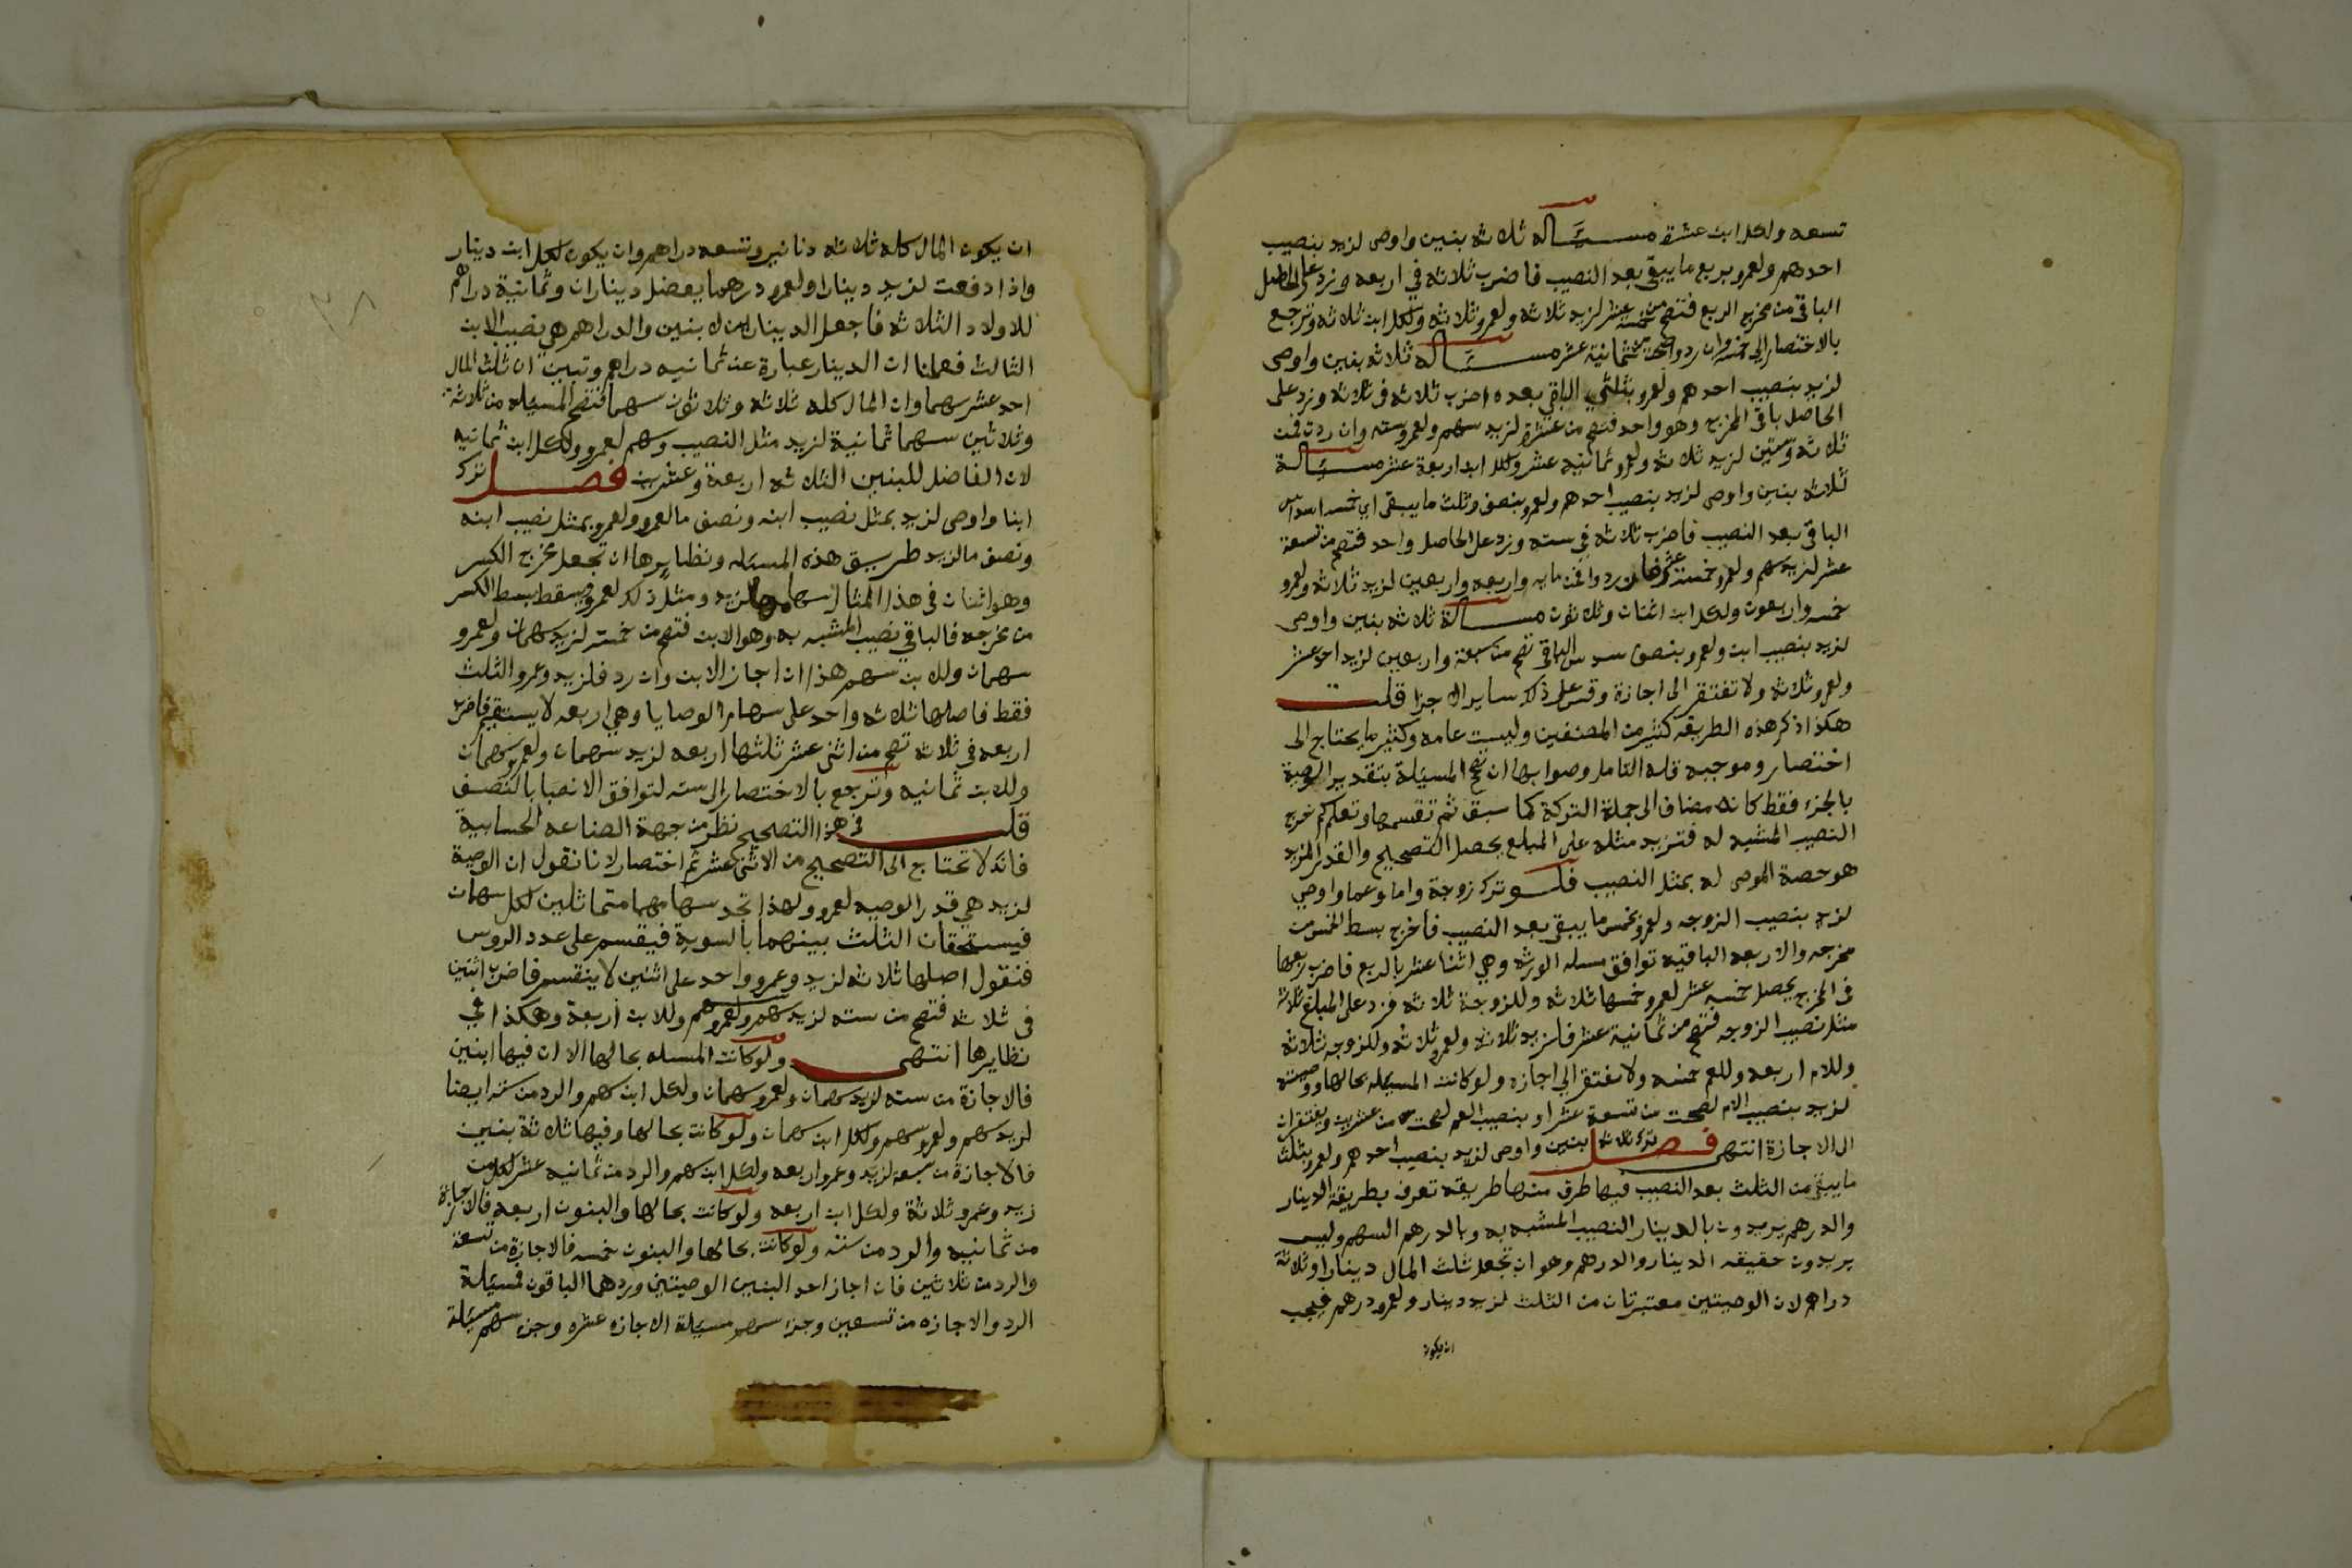 تسعه ولكل ابن عشرة مسئله ثلاثه بنين واوصى لزيد بنصيب
احدهم ولعمرو بربع ما يبقى بعد النصيب فاضرب ثلاثه في اربعه وزد على الحاصل
الباقي من مخرج الربع فتصح من خمسه عشر لزيد ثلاثه ولعمرو ثلاثه ولكل ابن ثلاثه وترجع
بالاختصار الى خمسه وان ردوا صحت من ثمانية عشر مسئله ثلاثه بنين واوصى
لزيد بنصيب احدهم ولعمرو بثلثي الباقي بعده اضرب ثلاثه في ثلاثه وزد على
الحاصل باقي المخرج وهو واحد فتصح من عشرة لزيد سهم ولعمرو سته وان ردت فمن
ثلاثه وستين لزيد ثلاثه ولعمرو ثمانيه عشر ولكل ابن اربعة عشر مسئلة
ثلاثه بنين واوصى لزيد بنصيب احدهم ولعمرو بنصف وثلث ما يبقى اي خمسه اسداس
الباقي بعد النصيب فاضرب ثلاثه في سته وزد على الحاصل واحد فتصح من تسعة
عشر لزيد سهم ولعمرو خمسة عشر فان ردوا فمن مايه واربعه واربعين لزيد ثلاثه ولعمرو
خمسه واربعون ولكل ابن اثنان وثلاثون مسئلة ثلاثه بنين واوصى
لزيد بنصيب ابن ولعمرو بنصف سدس الباقي تصح من سبعة واربعين لزيد احد عشر
ولعمرو ثلاثه ولا تفتقر الى اجازة وقس على ذلك ساير الاجزا قلت
هكذا ذكر هذه الطريقه كثير من المصنفين وليست عامه وكثير ما يحتاج الى
اختصار وموجبه قله التامل وصوابها ان تصح المسيلة بتقدير الوصية
بالجزء فقط كانه مضاف الى جملة التركة كما سبق ثم تقسمها وتعلم كم خرج
النصيب المشبه له فتزيد مثله على المبلغ يحصل التصحيح والقدر المزيد
هو حصة الموصى له بمثل النصيب فلو ترك زوجة واما وعما واوصى
لزيد بنصيب الزوجه ولعمرو بخمس ما يبقى بعد النصيب فاخرج بسط الخمس من
مخرجه والاربعه الباقيه توافق مسله الورثه وهي اثنا عشر بالربع فاضرب ربعها
في المخرج يحصل خمسه عشر لعمرو خمسها ثلاثه وللزوجة ثلاثه فزد على المبلغ ثلاثه
مثل نصيب الزوجه فتصح من ثمانية عشر فلزيد ثلاثه ولعمرو ثلاثه وللزوجه ثلاثه
وللام اربعه وللعم خمسه ولا تفتقر الى اجازه ولو كانت المسيله بحالها ووصيته
لزيد بنصيب الام لصحت من تسعة عشر او بنصيب العم لصحت من عشرين ويفتقران
الى الاجازة انتهى فصل ترك ثلاثه بنين واوصى لزيد بنصيب احدهم ولعمرو بثلث
ما يبقى من الثلث بعد النصيب فيها طرق منها طريقه تعرف بطريقة الدينار
والدرهم يريدون بالدينار النصيب المشبه به وبالدرهم السهم وليس
يريدون حقيقه الدينار والدرهم وهو ان تجعل ثلث المال دينارا وثلاثة
دراهم لان الوصيتين معتبرتان من الثلث لزيد دينار ولعمرو درهم فيجب
ان يكون
ان يكون المال كله ثلاثه دنانير وتسعه دراهم وان يكون لكل ابن دينار
واذا دفعت لزيد دينارا ولعمرو درهما يفضل ديناران وثمانية دراهم
للاولاد الثلاثه فاجعل الدينارين لابنين والدراهم هي نصيب الابن
الثالث فعلمنا ان الدينار عبارة عن ثمانيه دراهم وتبين ان ثلث المال
احد عشر سهما وان المال كله ثلاثه وثلاثون سهما فتصح المسيله من ثلاثة
وثلاثين سهما ثمانية لزيد مثل النصيب وسهم لعمرو ولكل ابن ثمانيه
لان الفاضل للبنين الثلاثه اربعة وعشرين فصل ترك
ابنا واوصى لزيد بمثل نصيب ابنه ونصف ما لعمرو ولعمرو بمثل نصيب ابنه
ونصف ما لزيد طريق هذه المسئله ونظايرها ان تجعل مخرج الكسر
وهو اثنان في هذا المثال سهاما لزيد ومثل ذلك لعمرو ويسقط بسط الكسر
من مخرجه فالباقي نصيب المشبه به وهو الابن فتصح من خمسة لزيد سهمان ولعمرو
سهمان وللابن سهم هذا ان اجاز الابن وان رد فلزيد وعمرو الثلث
فقط فاصلها ثلاثه واحد على سهام الوصايا وهي اربعه لا يستقيم فاضرب
اربعه في ثلاثه تصح من اثنى عشر ثلثها اربعه لزيد سهمان ولعمرو سهمان
وللابن ثمانيه وترجع بالاختصار الى سته لتوافق الانصبا بالنصف
قلت في هذا التصحيح نظر من جهة الصناعه الحسابية
فانك لا تحتاج الى التصحيح من الاثنى عشر ثم اختصار لانا نقول ان الوصية
لزيد هي قدر الوصيه لعمرو ولهذا تجد سهامهما متماثلين لكل سهمان
فيستحقان الثلث بينهما بالسوية فيقسم على عدد الروس
فنقول اصلها ثلاثه لزيد وعمرو واحد على اثنين لا ينقسم فاضرب اثنين
في ثلاثه فتصح من سته لزيد سهم ولعمرو سهم وللابن اربعة وهكذا في
نظايرها انتهى ولو كانت المسله بحالها الا ان فيها ابنين
فالاجازة من سته لزيد سهمان ولعمرو سهمان ولكل ابن سهم والرد من سته ايضا
لزيد سهم ولعمرو سهم ولكل ابن سهمان ولو كانت بحالها وفيها ثلاثة بنين
فالاجازة من سبعه لزيد وعمرو اربعه ولكل ابن سهم والرد من ثمانيه عشر لكل من
زيد وعمرو ثلاثة ولكل ابن اربعه ولو كانت بحالها والبنون اربعه فالاجازة
من ثمانيه والرد من سته ولو كانت بحالها والبنون خمسه فالاجازة من تسعة
والرد من ثلاثين فان اجاز احد البنين الوصيتين وردهما الباقون فمسيلة
الرد والاجازه من تسعين وجزء سهم مسيلة الاجازه عشره وجزء سهم مسيلة